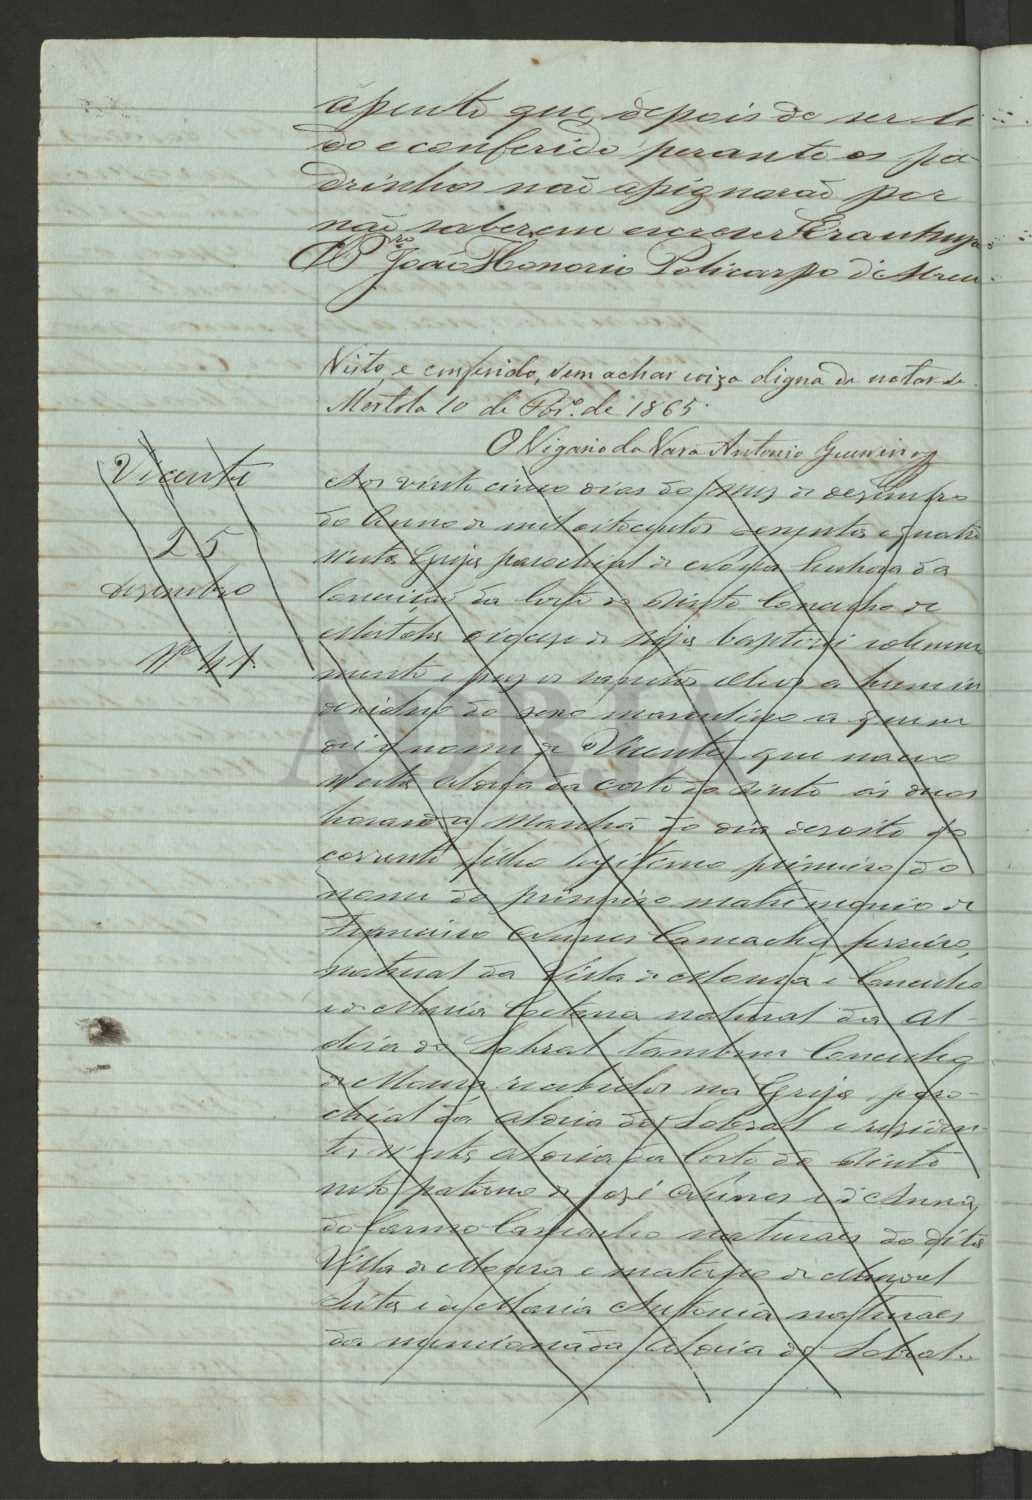 aſsento que depois de ser li
do e conferido perante os pa
drinhos naõ aſsignaraõ por
naõ saberem escrever Era ut supra
O Pre Joaõ Honorio Policarpo d'Abreu
Visto, e conferido, sem achar coiza digna de notar-se
Mertola 10 de de 1865.
O Vigario da Vara Antonio
Vicente
25
dezembro
Nº 41
Aos vinte cinco dias do mez de dezembro
do Anno de mil oitocentos sesenta e quatro
n'esta Igreja parochial de Noſsa Senhora da
Conceiçaõ da Corte do Pinto Concelho de
Mertola diocese de Beja baptizei solemne
mente e puz os santos oleos a hum in
dividuo do sexo masculino a quem
dei o nome de Vicente que nasceo
n'esta Aldeia da Corte do Pinto ás duas
horas da manhã do dia dezoito do
corrente filho legitimo primeiro do
nome do primeiro matrimonio de
Francisco Nunes Camacho, ferreiro,
natural da Villa de Moura e Concelho
e de Maria Caetana natural da Al-
deia do Sobral tambem Concelho
de Moura recebidos na Igreja paro-
chial da Aldeia do Sobral e residen-
tes n'esta Aldeia da Corte do Pinto
neto paterno de José Nunes e d'Anna
do Carmo Camacho naturaes da dita
Villa de Moura e materno de Manoel
e de Maria Antonia naturaes
da mencionada Aldeia do Sobral.
ADBJA